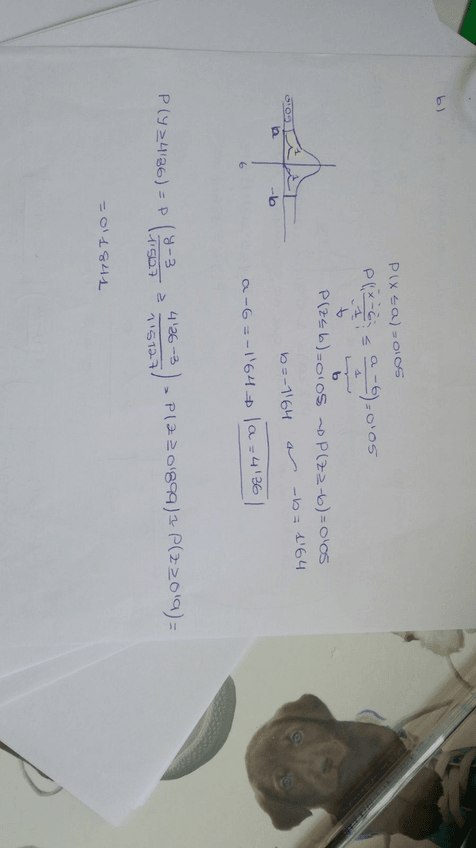 b)
P(X ≤ a) = 0'05
P(X-6/1 ≤ a-6/1) = 0'05
b
P(Z ≤ b) = 0'05 → P(Z ≥ -b) = 0'05
b = -1'64 -b = 1'64
0'05 a 1 1 -b
6
a - 6 = -1'64 → a = 4'36
P(Y ≥ 4'36) = P(y-3/1'5127 ≥ 4'36-3/1'5127) = P(Z ≥ 0'899) ≈ P(Z ≥ 0'9) =
= 0'1841